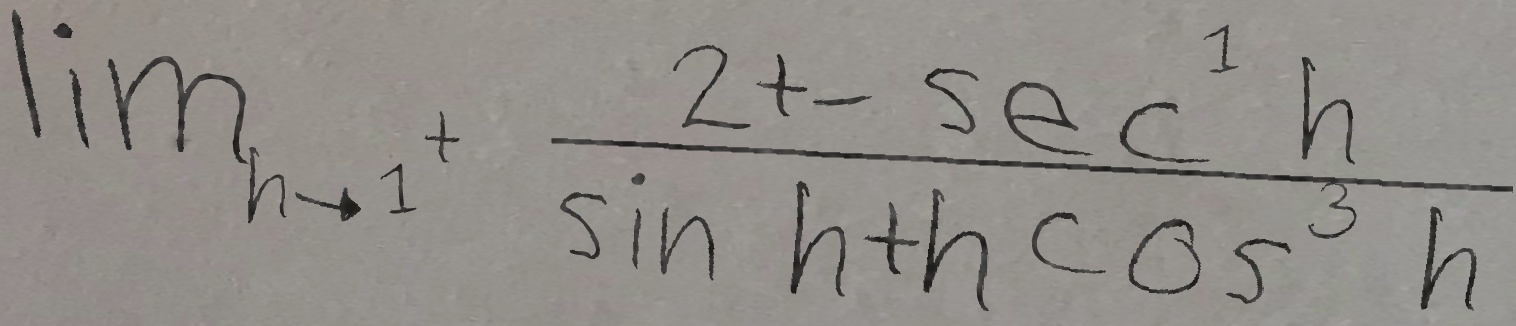 \lim_{h \to 1^+} \frac{2t - \sec^1 h}{\sin h + h \cos^3 h}